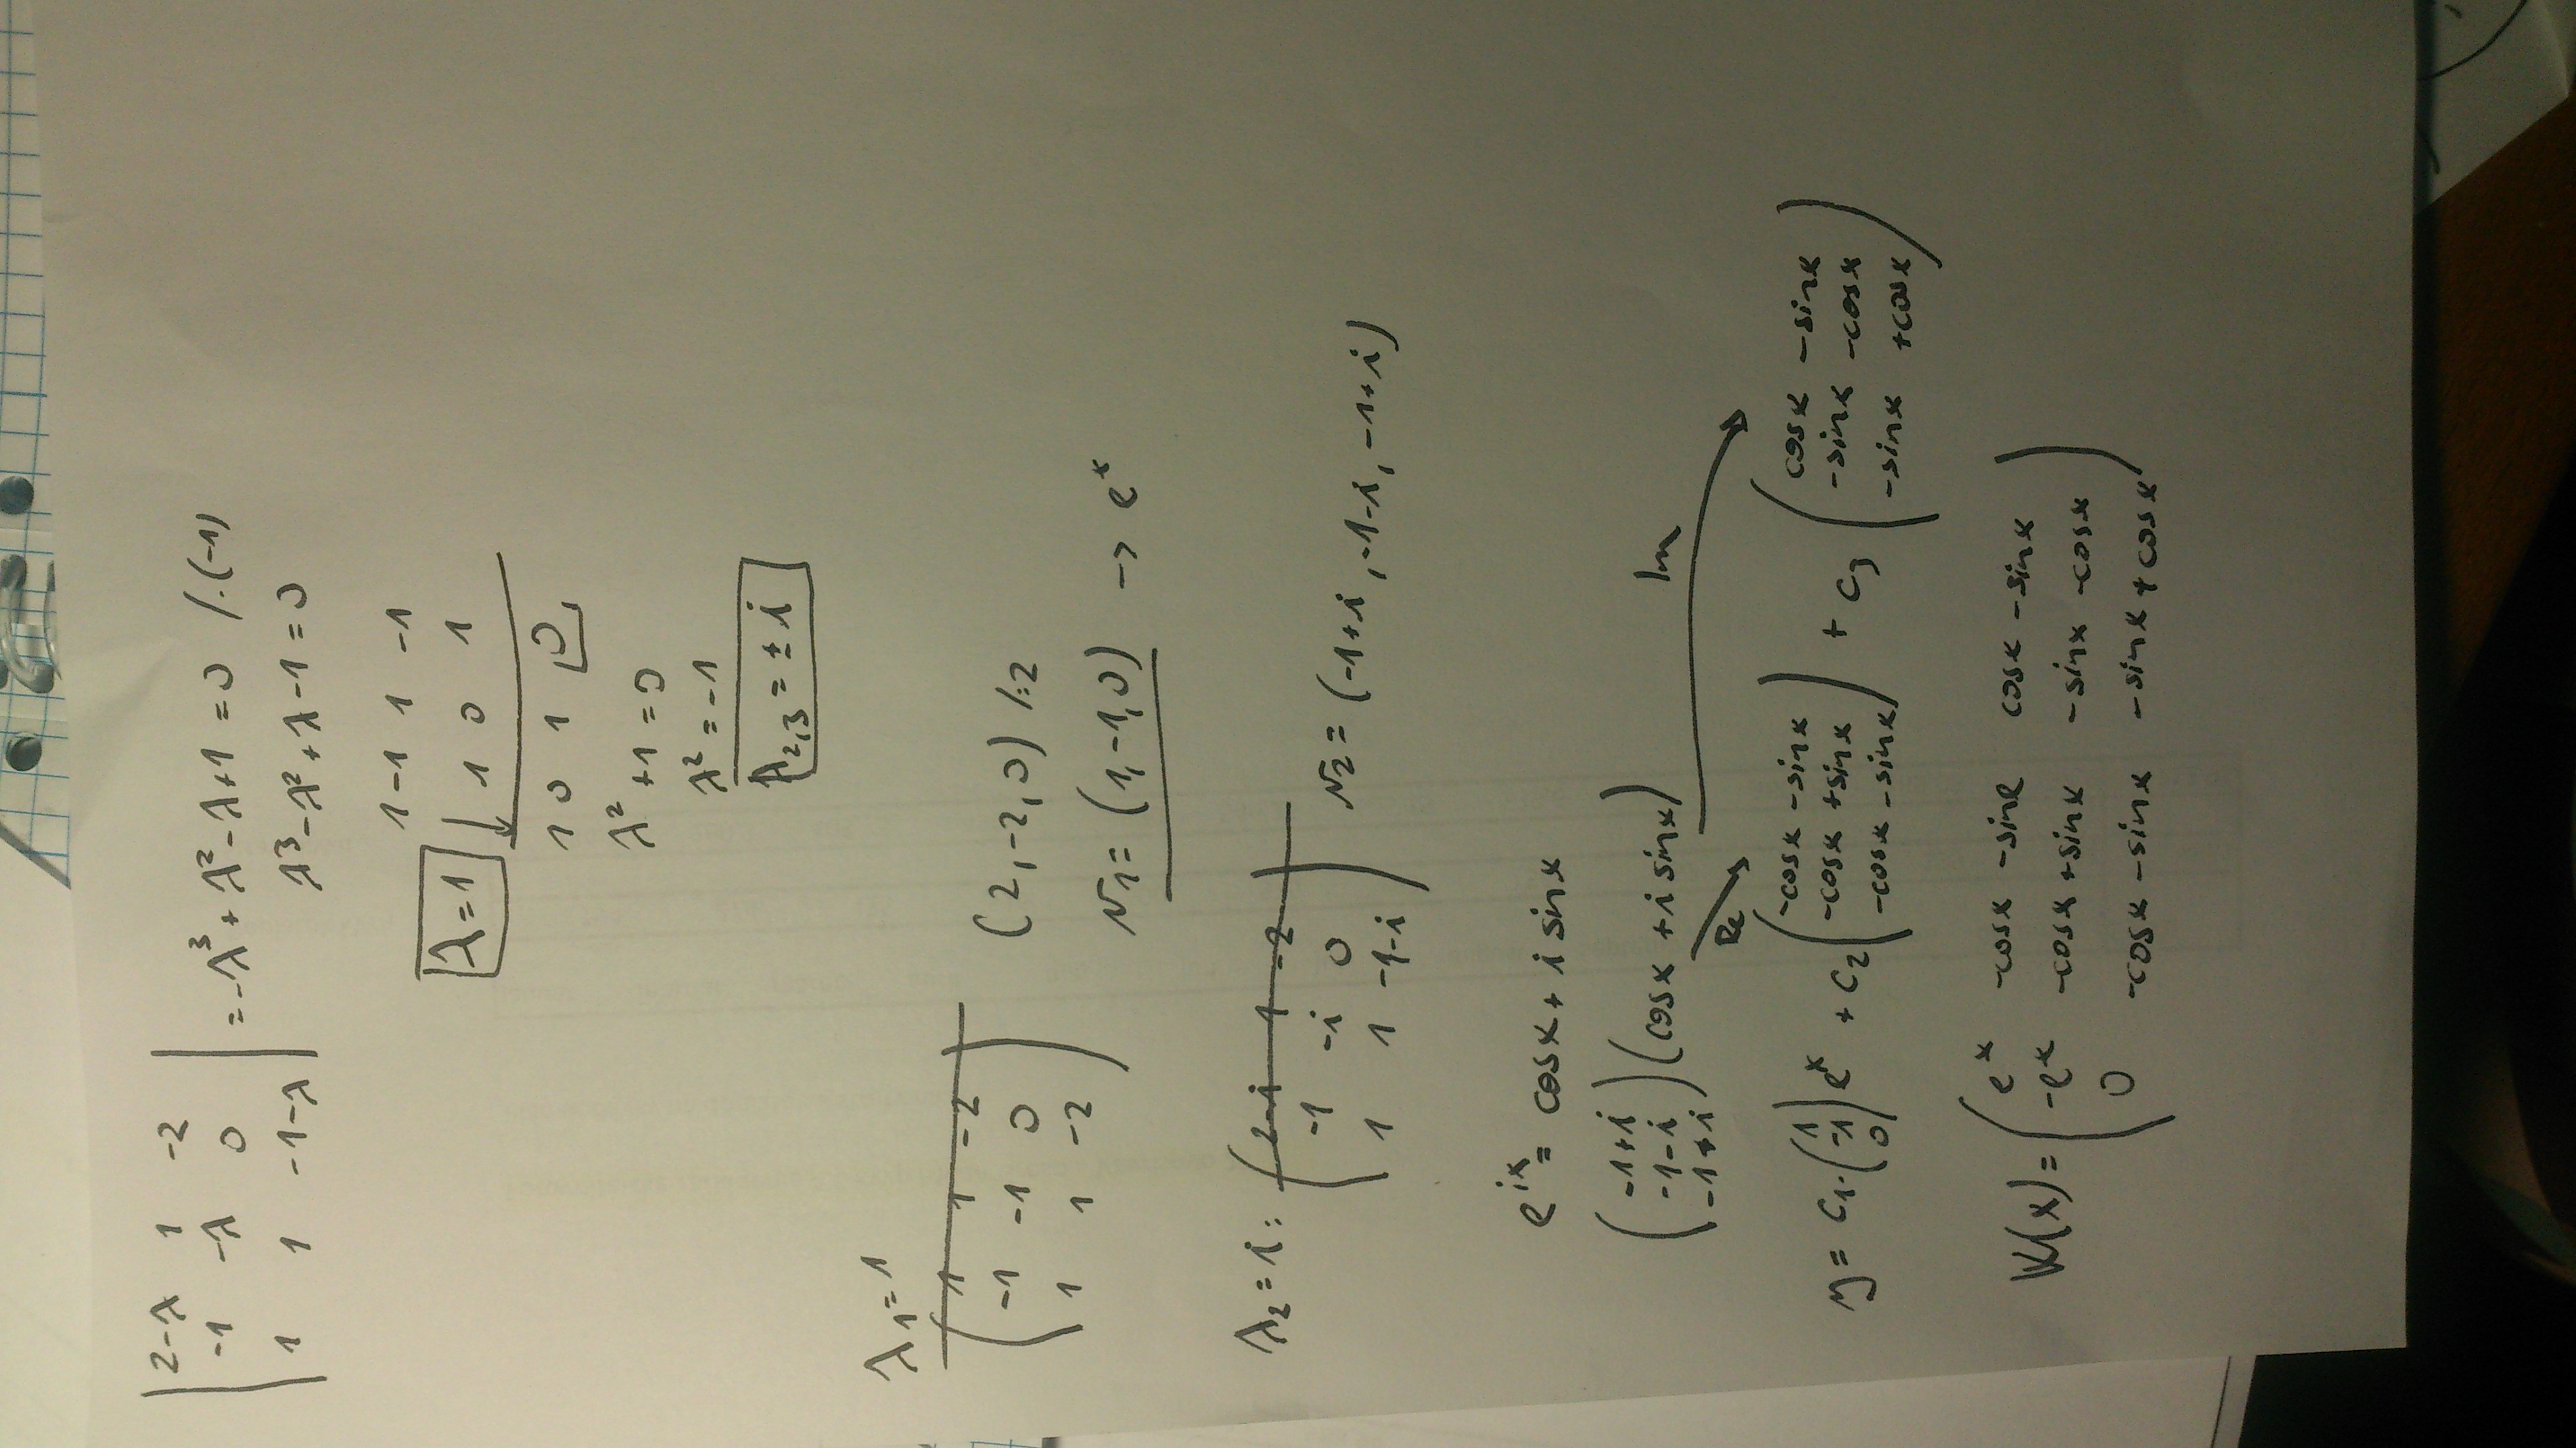 | 2-λ 1 -2 |
| -1 -λ 0 | = -λ³ + λ² - λ + 1 = 0 /·(-1)
| 1 1 -1-λ | λ³ - λ² + λ - 1 = 0
1 -1 1 -1
λ = 1 ↓ 1 0 1
1 0 1 0
λ² + 1 = 0
λ² = -1
λ₂,₃ = ± i
λ₁ = 1
( 1 1 -2 )
( -1 -1 0 ) (2, -2, 0) /:2
( 1 1 -2 )
v₁ = (1, -1, 0) → eˣ
λ₂ = i : ( 2-i 1 -2 )
( -1 -i 0 ) v₂ = (-1+i, -1-i, -1+i)
( 1 1 -1-i )
e^{ix} = cosx + i sinx
( -1+i )
( -1-i ) (cosx + i sinx) Im
( -1+i )
Re
y = c₁·( 1 -1 0 ) eˣ + c₂ ( -cosx -sinx -cosx +sinx -cosx -sinx ) + c₃ ( cosx -sinx -sinx -cosx -sinx +cosx )
( eˣ -cosx -sinx cosx -sinx )
W(x) = ( -eˣ -cosx +sinx -sinx -cosx )
( 0 -cosx -sinx -sinx +cosx )